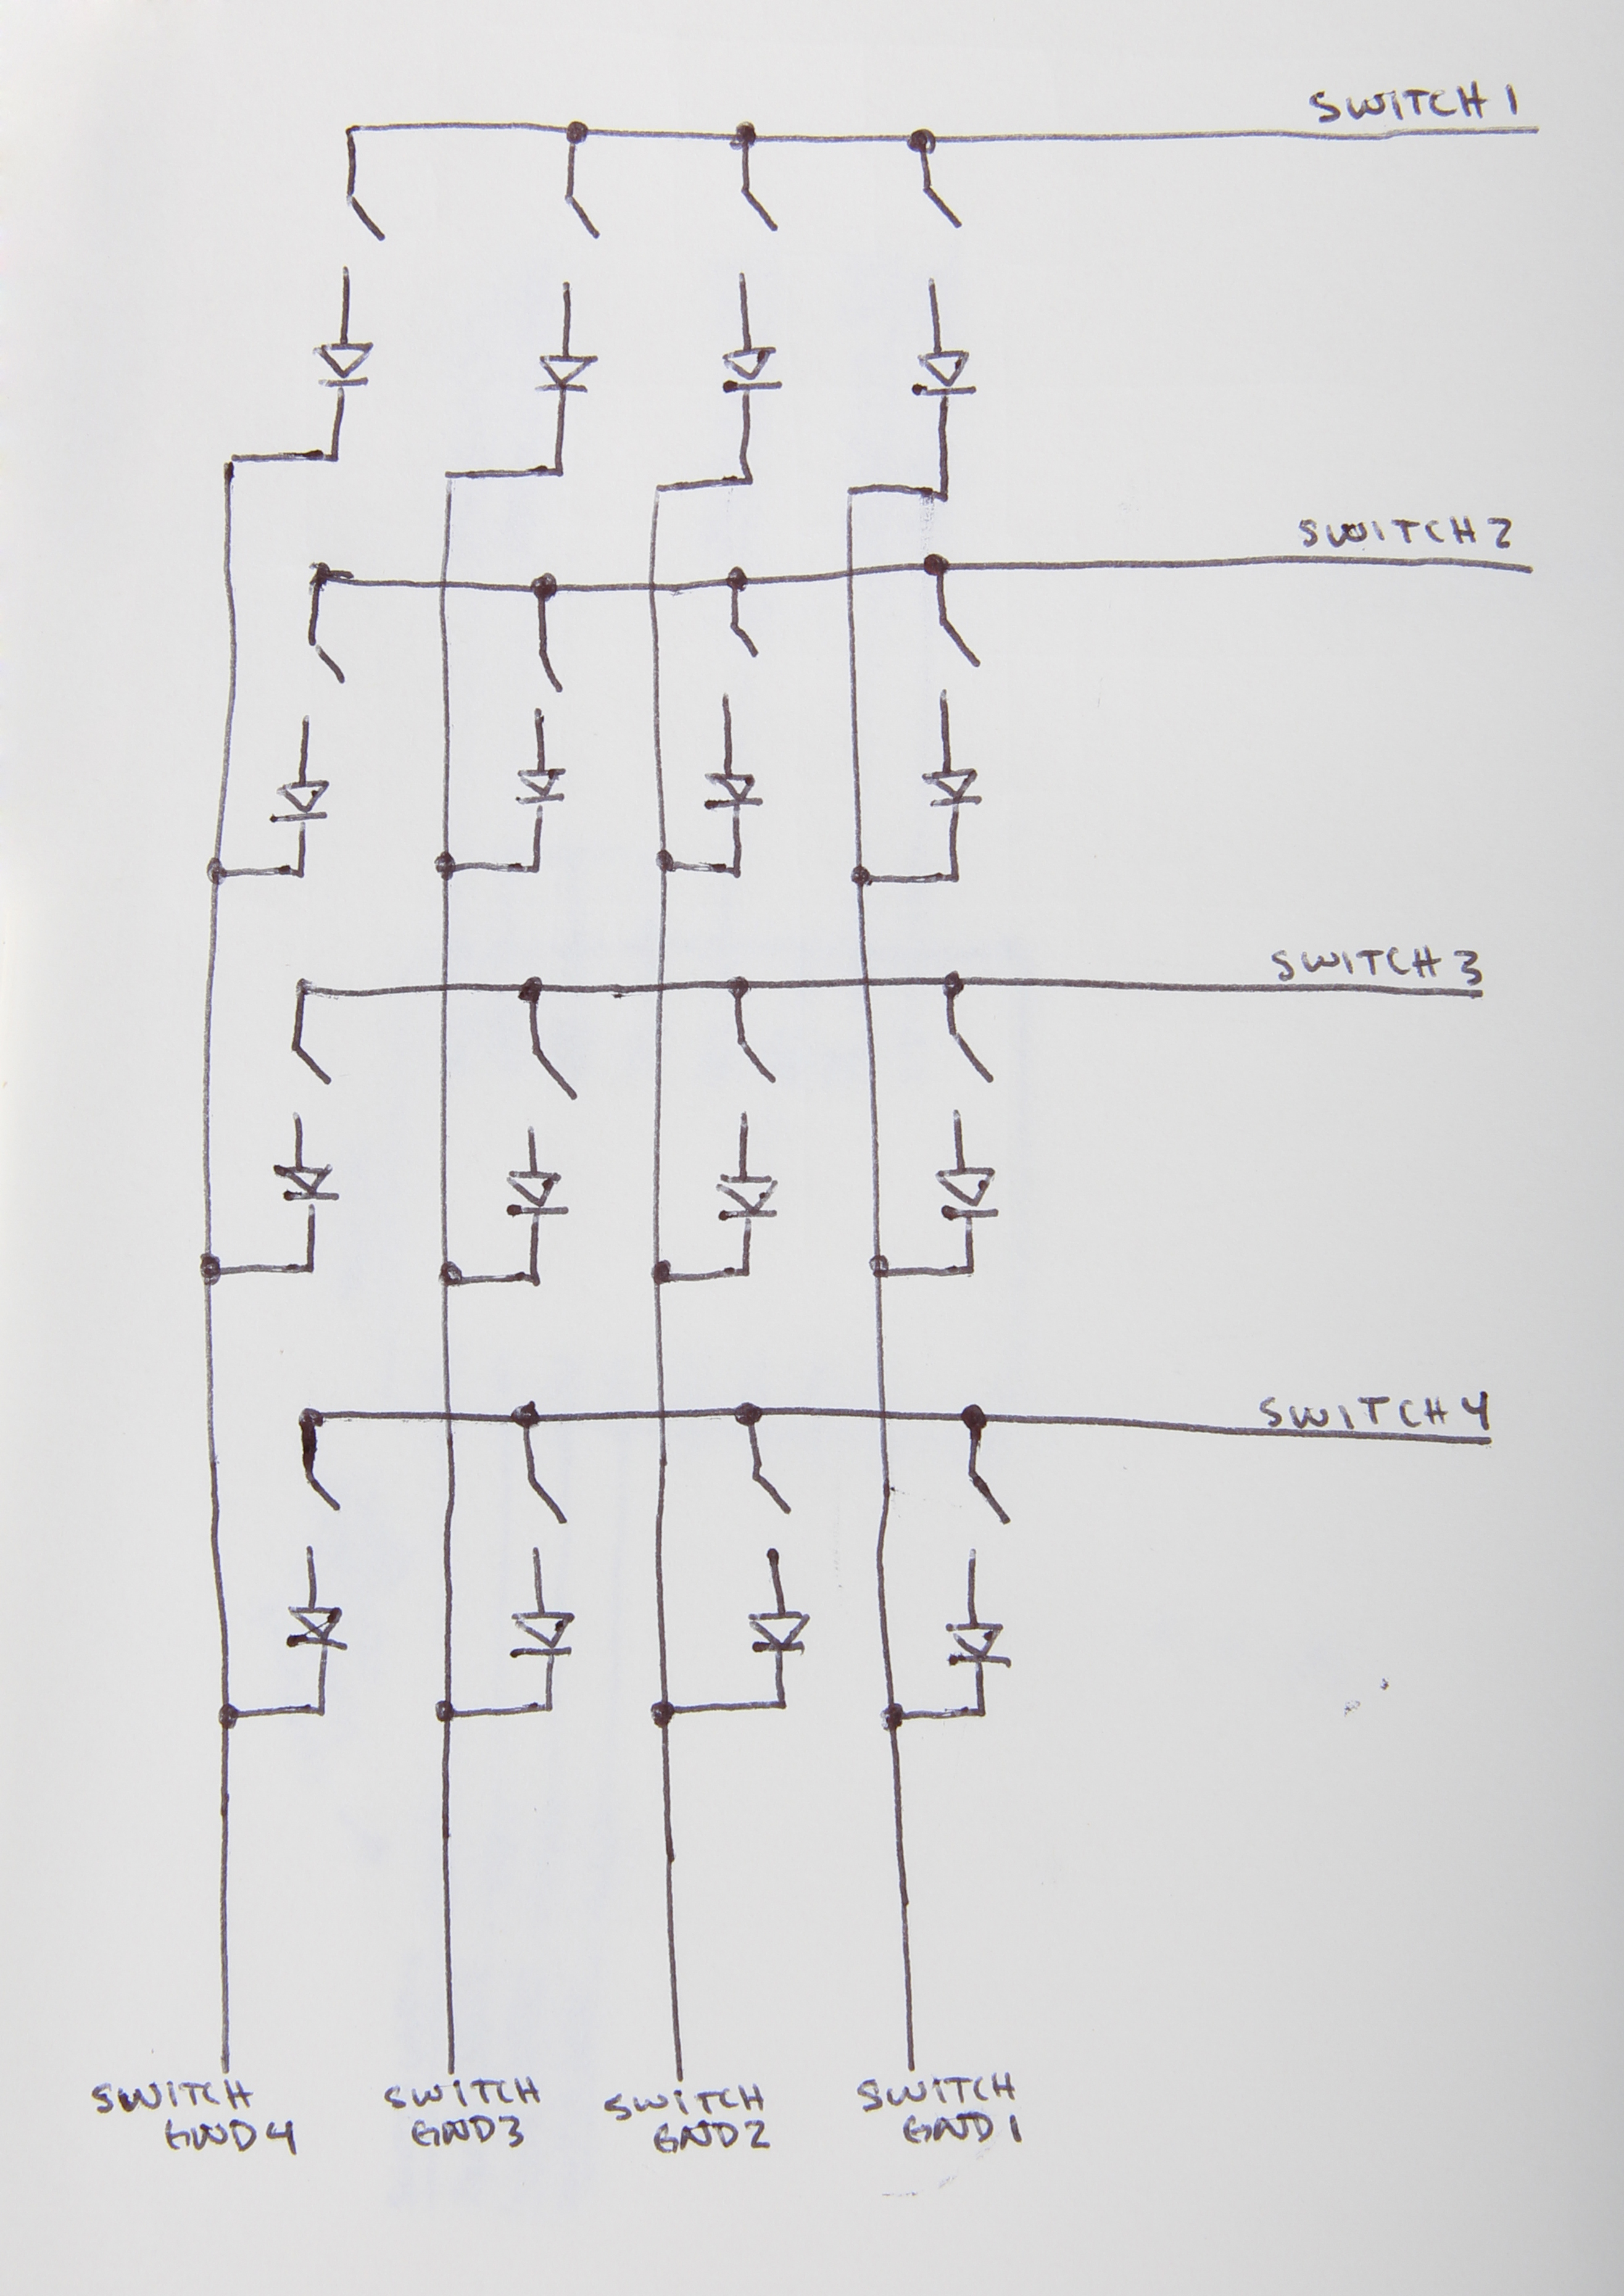 SWITCH 1
SWITCH 2
SWITCH 3
SWITCH 4
SWITCH
GND4
SWITCH
GND3
SWITCH
GND2
SWITCH
GND1